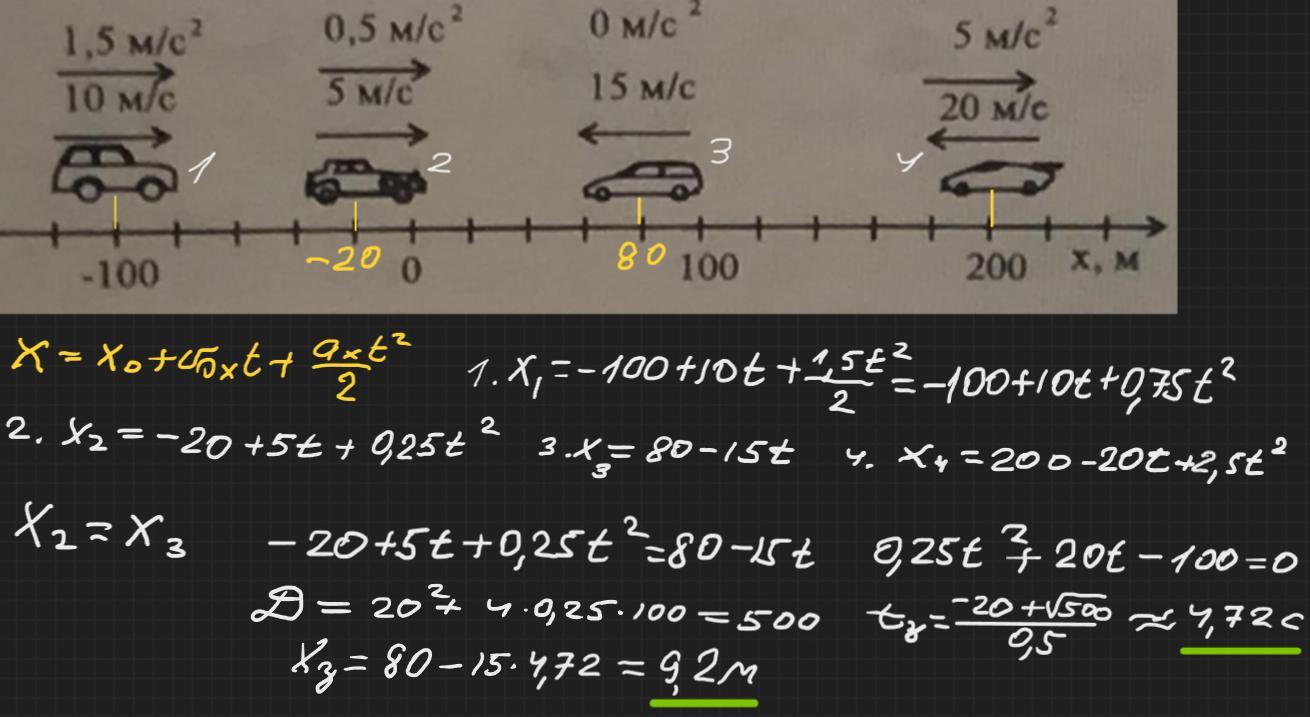 1,5 м/с² 0,5 м/с² 0 м/с² 5 м/с²
10 м/с 5 м/с 15 м/с 20 м/с
1 2 3 4
-20 80
-100 0 100 200 x, м
x = x₀ + υ₀ₓt + aₓt²/2 1. x₁ = -100 + 10t + 1,5t²/2 = -100 + 10t + 0,75t²
2. x₂ = -20 + 5t + 0,25t² 3. x₃ = 80 - 15t 4. x₄ = 200 - 20t + 2,5t²
x₂ = x₃ -20 + 5t + 0,25t² = 80 - 15t 0,25t² + 20t - 100 = 0
D = 20² + 4·0,25·100 = 500 t_в = (-20 + √500)/0,5 ≈ 4,72 с
x_в = 80 - 15·4,72 = 9,2 м